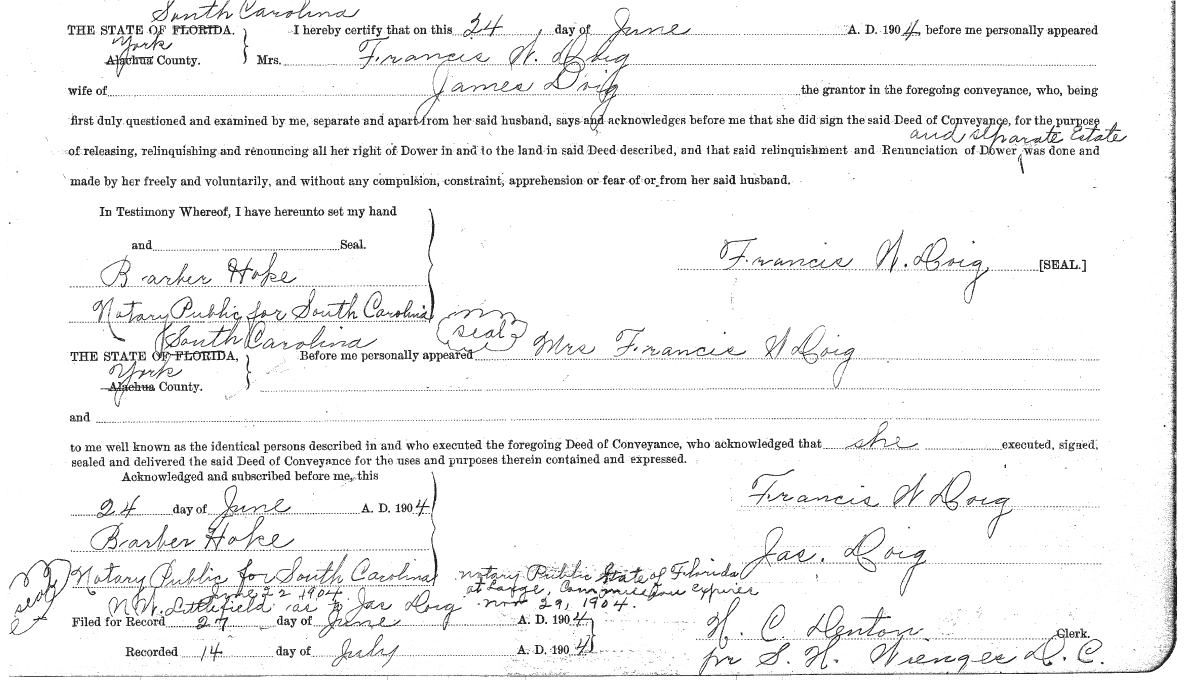 South Carolina
THE STATE OF FLORIDA. I hereby certify that on this 24 day of June A. D. 1904, before me personally appeared
York
Alachua County. Mrs. Francis W. Doig
wife of James Doig the grantor in the foregoing conveyance, who, being
first duly questioned and examined by me, separate and apart from her said husband, says and acknowledges before me that she did sign the said Deed of Conveyance, for the purpose
and separate Estate
of releasing, relinquishing and renouncing all her right of Dower in and to the land in said Deed described, and that said relinquishment and Renunciation of Dower was done and
made by her freely and voluntarily, and without any compulsion, constraint, apprehension or fear of or from her said husband.
In Testimony Whereof, I have hereunto set my hand
and Seal.
Francis W. Doig [SEAL.]
Barber Hoke
Notary Public for South Carolina
seal
South Carolina
THE STATE OF FLORIDA, Before me personally appeared Mrs Francis W Doig
York
Alachua County.
and
to me well known as the identical persons described in and who executed the foregoing Deed of Conveyance, who acknowledged that she executed, signed,
sealed and delivered the said Deed of Conveyance for the uses and purposes therein contained and expressed.
Acknowledged and subscribed before me, this
24 day of June A. D. 1904
Francis W Doig
Barber Hoke
Jas. Doig
seal
Notary Public for South Carolina
June 22 1904
N. W. Littlefield as to Jas Doig
notary Public State of Florida
at Large, Commission Expires
nov 29, 1904.
Filed for Record 27 day of June A. D. 1904
H. C. Denton Clerk.
Recorded 14 day of July A. D. 1904
pr S. H. Wienges D. C.